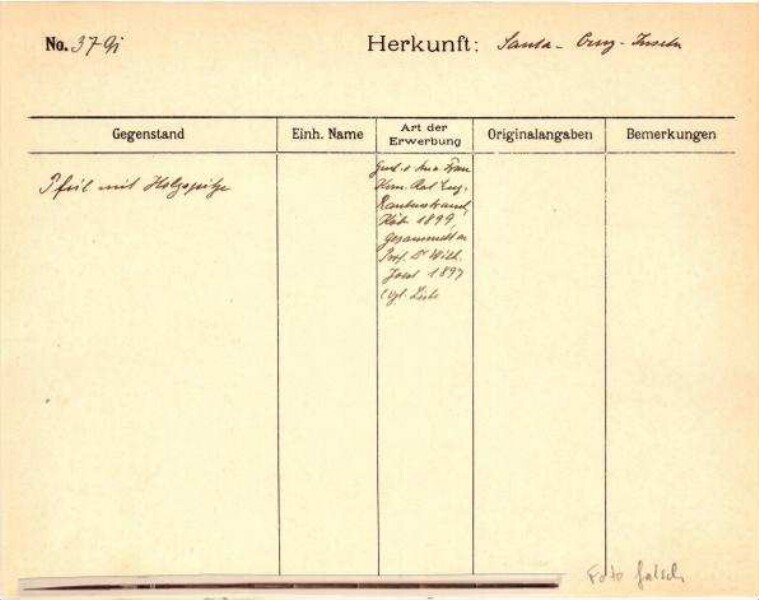 No. 3791 Herkunft: Santa-Cruz-Inseln
Gegenstand Einh. Name Art der Erwerbung Originalangaben Bemerkungen
Pfeil mit Holzspitze
Frau
Kom. Rat Eug.
Rautenstrauch,
Köln 1899,
gesammelt v.
Prof. Dr Wilh.
Joest 1897
(vgl. Liste
Foto falsch